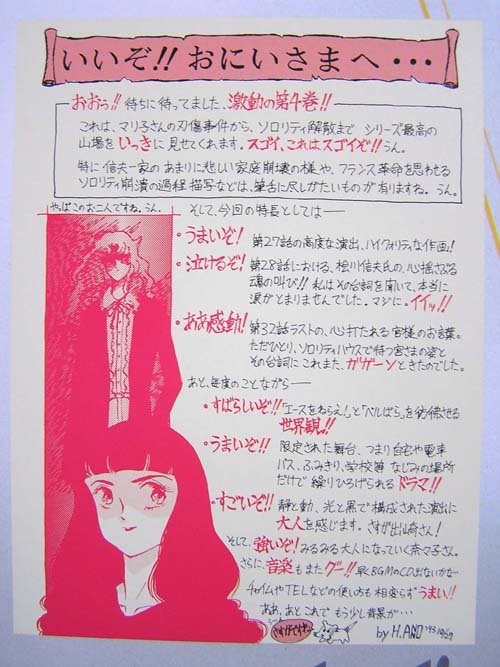 いいぞ!! おにいさまへ・・・
おおっ!! 待ちに待ってました、激動の第4巻!!
これは、マリ子さんの刃傷事件から、ソロリティ解散まで シリーズ最高の
山場を いっきに 見せてくれます。スゴイ、これはスゴイぞ!! うん。
特に 信夫一家の あまりに悲しい家庭崩壊の様や、フランス革命を思わせる
ソロリティ崩潰の過程描写などは、筆舌に尽しがたいものが有りますね。うん。
やっぱこのお二人ですね。うん。
そして、今回の特長としては――
・うまいぞ! 第27話の高度な演出、ハイクォリティな作画!
・泣けるぞ! 第28話における、桧川信夫氏の、心揺さぶる
魂の叫び!! 私はその台詞を聞いて、本当に
涙がとまりませんでした。マジに・イイッ!!
・ああ感動! 第32話ラストの、心打たれる 宮様のお言葉。
ただひとり、ソロリティハウスで待つ宮さまの姿と
その台詞にこれまた ガガーンときたのでした。
あと、毎度のことながら――
・すばらしいぞ!! 「エースをねらえ!」と「ベルばら」を彷彿させる
世界観!!
・うまいぞ!! 限定された舞台、つまり自宅や電車
バス、ふみきり、学校等 なじみの場所
だけで繰りひろげられるドラマ!!
・すごいぞ!! 静と動、光と黒で構成された演出に
大人を感じます。さすが出﨑さん!
そして、強いぞ! みるみる大人になっていく奈々子さん。
さらに、音楽もまたグー!! 早くBGMのCD出ないかな
チャイムやTELなどの使い方も 相変らずうまい!!
ああ、あとこれで もう少し背景が・・・
さすがですねェ
by H.ANO '93 10/27